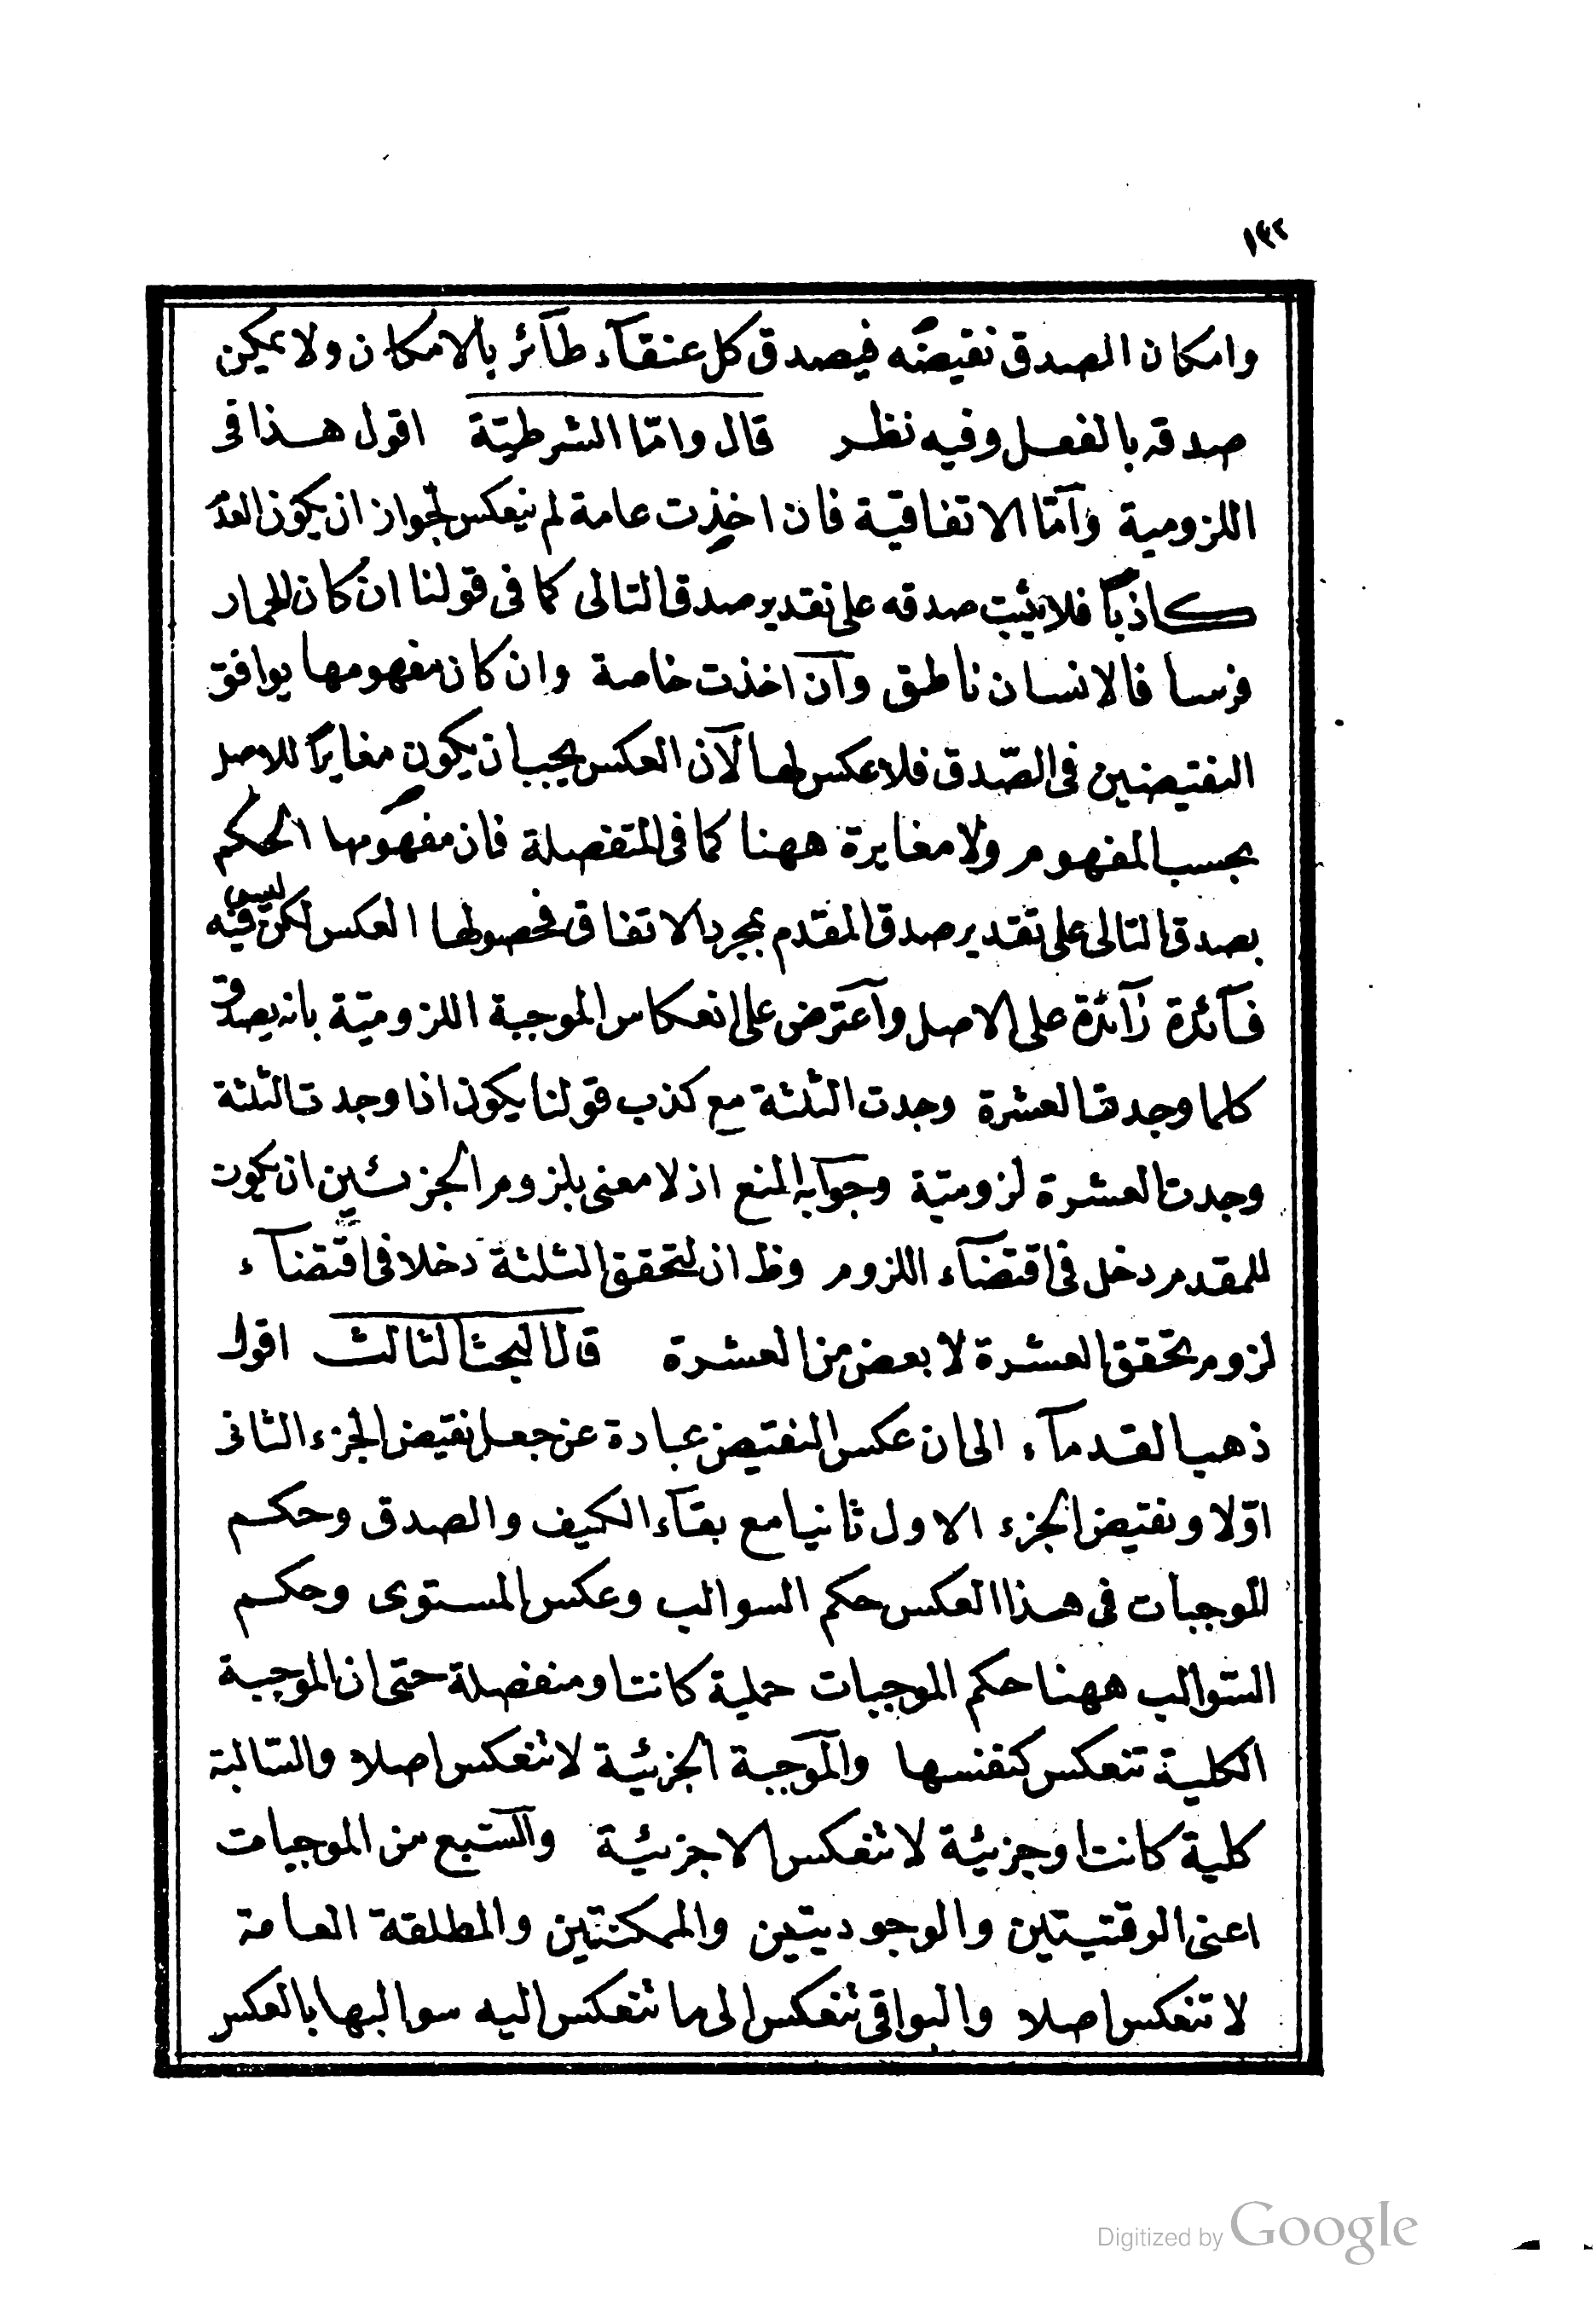 ١٤٢
وامكان الصدق نقيضه فيصدق كل عنقآء طآئر بالامكان ولا يمكن
صدقه بالفعل وفيه نظر قال وامّا الشرطيّة اقول هذا فى
اللزومية وآمّا الاتفاقية فان اخذت عامة لم ينعكس لجواز ان يكون المقدّ
كاذبًا فلا يثبت صدقه على تقدير صدق التالى كما فى قولنا ان كان الحمار
فرسا فالانسان ناطق وآن اخذت خاصة وان كان مفهومها يوافق
النقيضين فى الصّدق فلا عكس لها لآن العكس يجب ان يكون مغايرًا للاصل
بحسب المفهوم ولا مغايرة ههنا كما فى المتفصلة فان مفهومها الحكم
بصدق التالى على تقدير صدق المقدم بمجرد الاتفاق فحصولها العكس لكن ليس فيه
فآئدة زآئدة على الاصل وآعترض على انعكاس الموجبة اللزوميّة بانه يصدق
كلما وجدت العشرة وجدت الثلثة مع كذب قولنا يكون اذا وجدت الثلثة
وجدت العشرة لزوميّة وجوآبه المنع اذ لا معنى بلزوم الجزئيين ان يكون
للمقدم دخل فى اقتضآء اللزوم وظ ان لتحقق الثلثة دخلا فى اقتضآء
لزوم تحقق العشرة لا بعض من العشرة قال البحث الثالث اقول
ذهب القدمآء الى ان عكس النقيض عبارة عن جعل نقيض الجزء الثانى
اوّلا ونقيض الجزء الاول ثانيا مع بقآء الكيف والصدق وحكم
الموجبات فى هذا العكس حكم السوالب وعكس المستوى وحكم
السّوالب ههنا حكم الموجبات حملية كانت او منفصلة حتى ان الموجبة
الكلية تنعكس كنفسها والموجبة الجزئية لا تنعكس اصلا والسّالبة
كلية كانت او جزئية لا تنعكس الا جزئية والسّبع من الموجبات
اعنى الوقتيتين والوجوديتين والممكنتين والمطلقة العامة
لا تنعكس اصلا والبواقى تنعكس الى ما تنعكس اليه سوالبها بالعكس
Digitized by Google